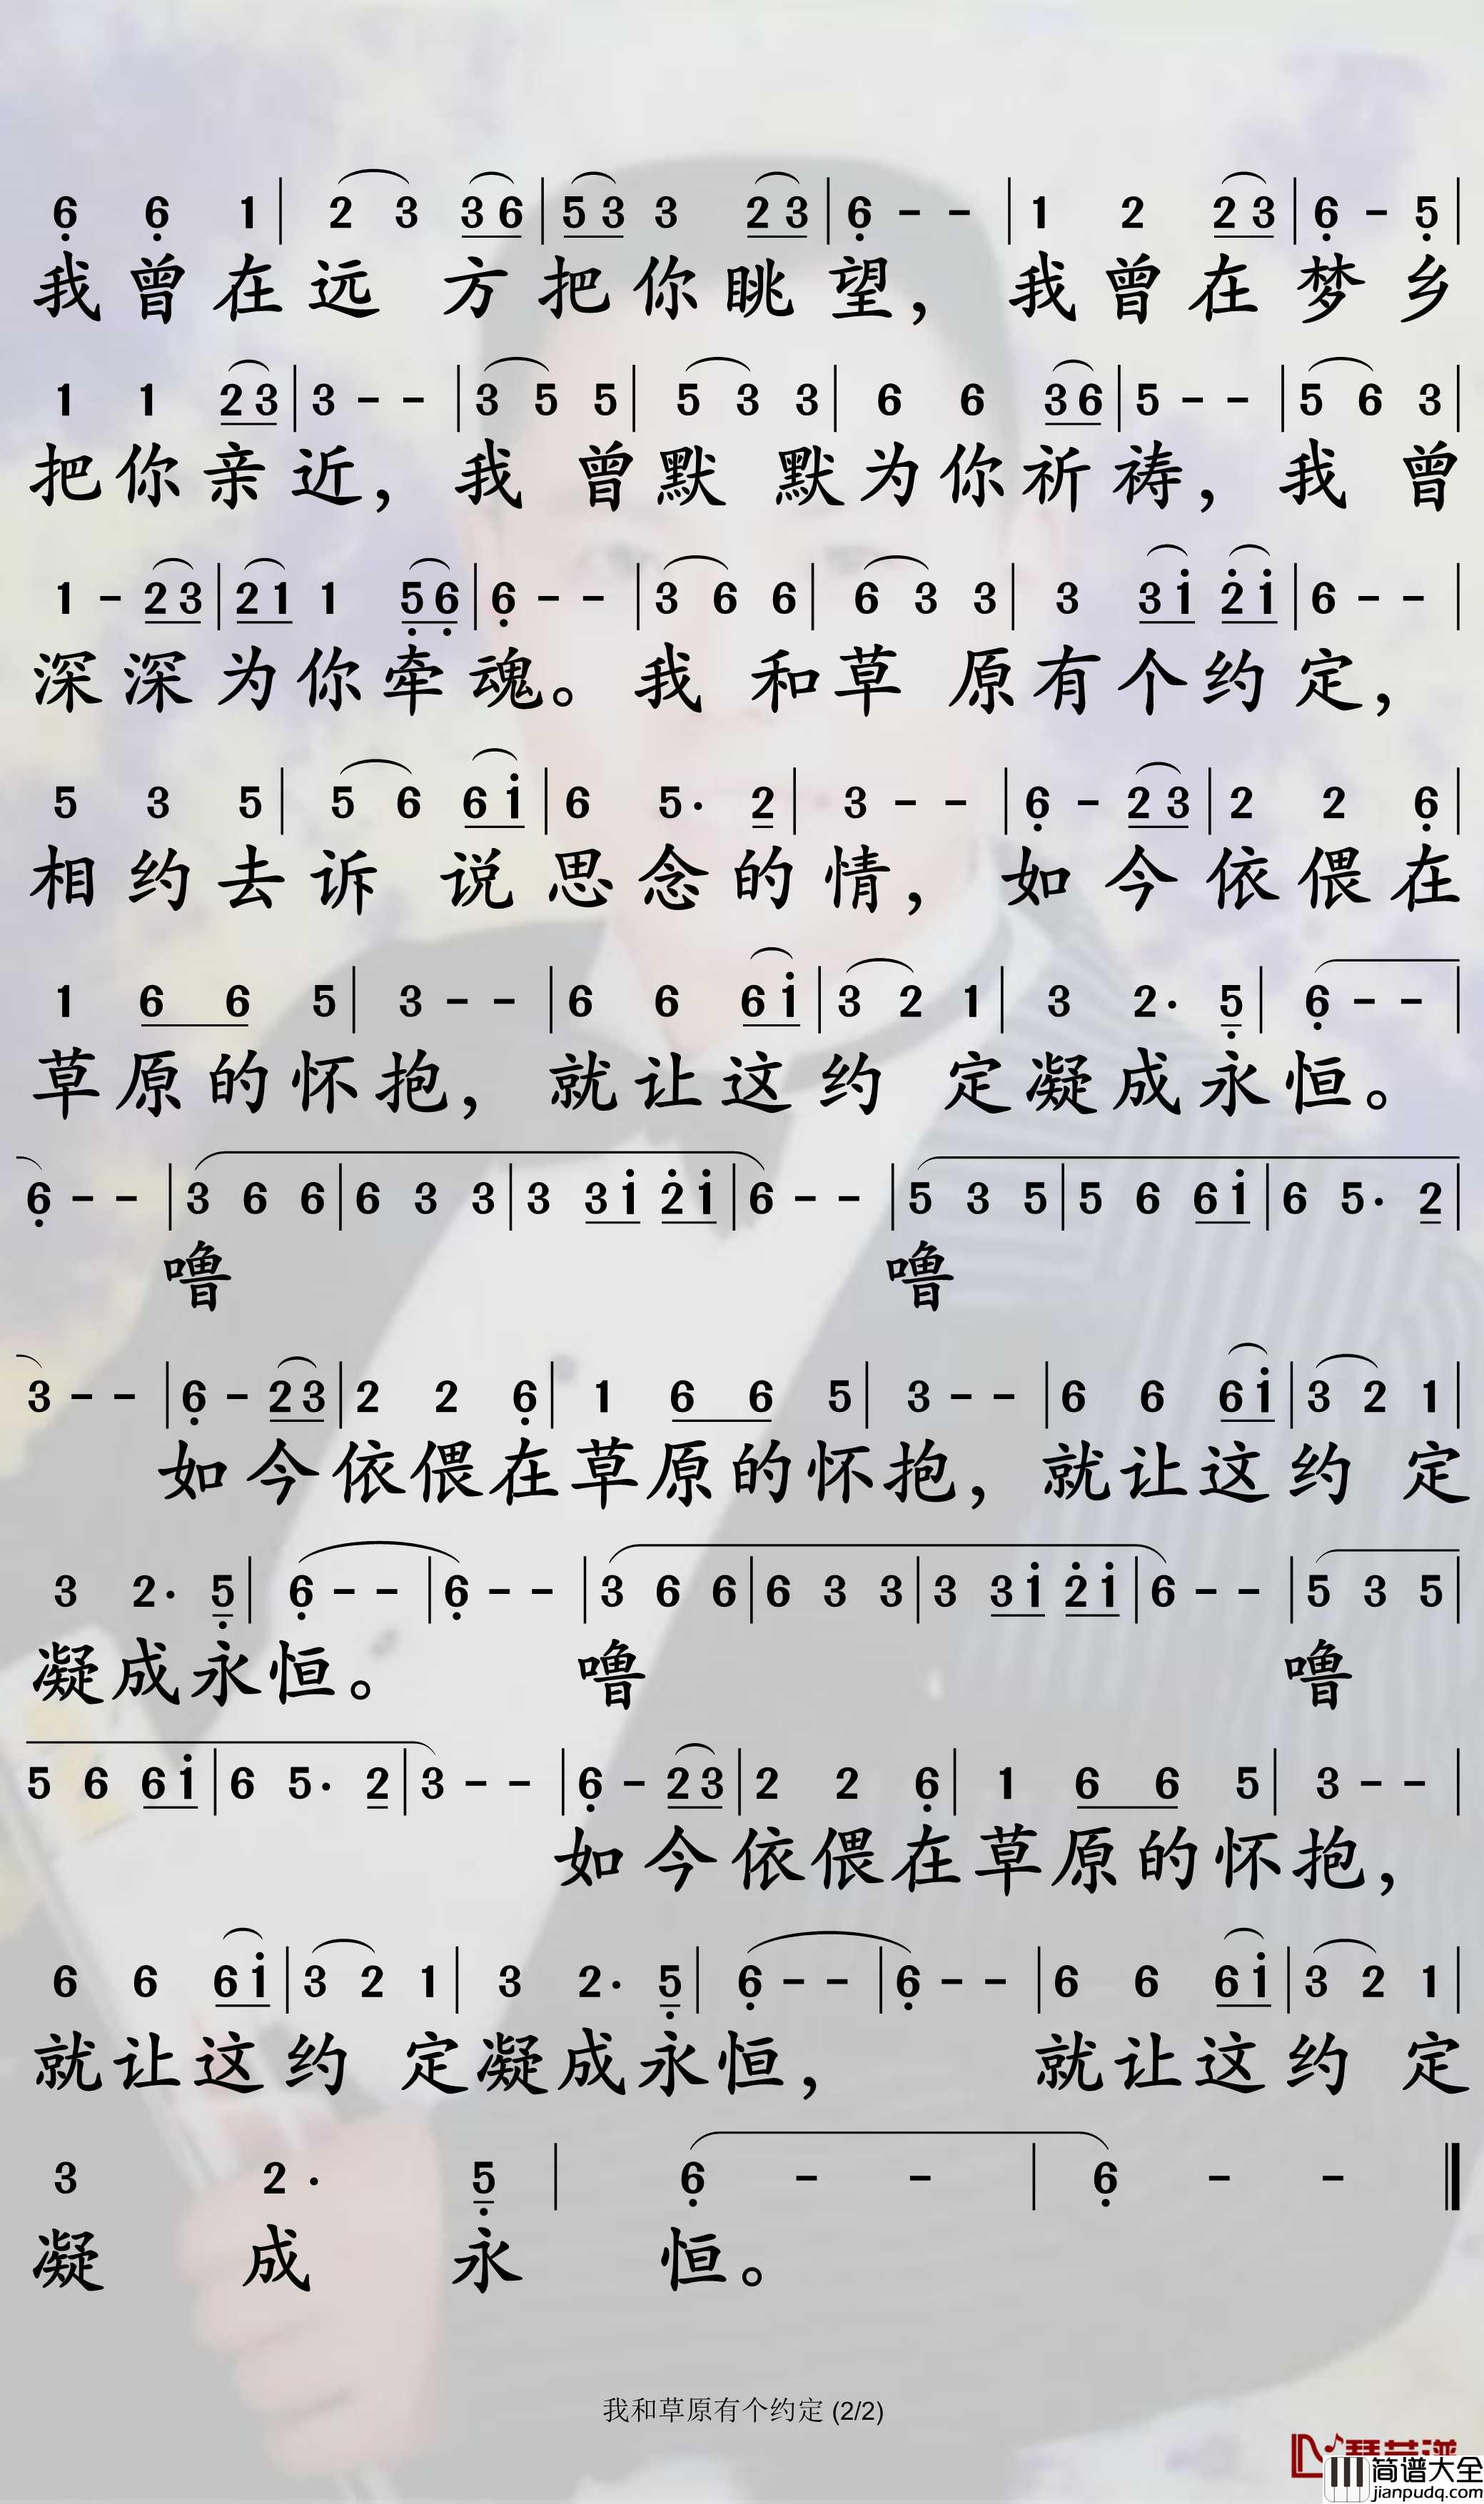 6̣ 6̣ 1 | 2 3 3 6 | 5 3 3 2 3 | 6̣ - - | 1 2 2 3 | 6̣ - 5̣ |
我曾在远 方把你眺望，我曾在梦乡
1 1 2 3 | 3 - - | 3 5 5 | 5 3 3 | 6 6 3 6 | 5 - - | 5 6 3 |
把你亲近，我 曾默 默为你祈祷，我 曾
1 - 2 3 | 2 1 1 5̣ 6̣ | 6̣ - - | 3 6 6 | 6 3 3 | 3 3 1̇ 2̇ 1̇ | 6 - - |
深深为你牵魂。我 和草 原有个约定，
5 3 5 | 5 6 6 1̇ | 6 5. 2 | 3 - - | 6̣ - 2 3 | 2 2 6̣ |
相约去诉 说思念的情，如今依偎在
1 6 6 5 | 3 - - | 6 6 6 1̇ | 3 2 1 | 3 2. 5̣ | 6̣ - - |
草原的怀抱，就让这约 定凝成永恒。
6̣ - - | 3 6 6 | 6 3 3 | 3 3 1̇ 2̇ 1̇ | 6 - - | 5 3 5 | 5 6 6 1̇ | 6 5. 2 |
噜 噜
3 - - | 6̣ - 2 3 | 2 2 6̣ | 1 6 6 5 | 3 - - | 6 6 6 1̇ | 3 2 1 |
如今依偎在草原的怀抱，就让这约 定
3 2. 5̣ | 6̣ - - | 6̣ - - | 3 6 6 | 6 3 3 | 3 3 1̇ 2̇ 1̇ | 6 - - | 5 3 5 |
凝成永恒。 噜 噜
5 6 6 1̇ | 6 5. 2 | 3 - - | 6̣ - 2 3 | 2 2 6̣ | 1 6 6 5 | 3 - - |
如今依偎在草原的怀抱，
6 6 6 1̇ | 3 2 1 | 3 2. 5̣ | 6̣ - - | 6̣ - - | 6 6 6 1̇ | 3 2 1 |
就让这约 定凝成永恒， 就让这约 定
3 2. 5̣ | 6̣ - - | 6̣ - - ‖
凝 成 永 恒。
我和草原有个约定 (2/2)
简谱大全
jianpudq.com